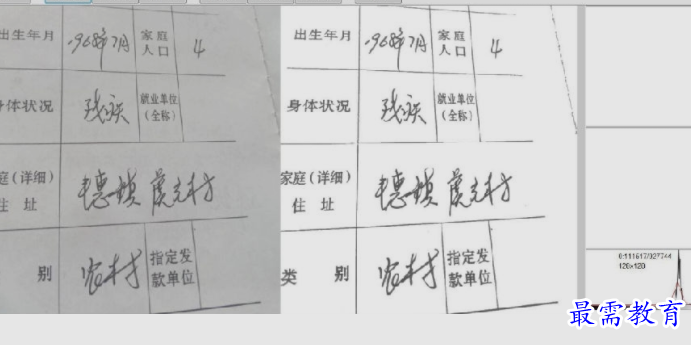 出生年月 1968年7月 家庭人口 4 出生年月 1968年7月 家庭人口 4
身体状况 残疾 就业单位(全称) 身体状况 残疾 就业单位(全称)
庭(详细)住址 家庭(详细)住址
别 农村 指定发款单位 类别 农村 指定发款单位
0:111617/327744
128×128
最需教育